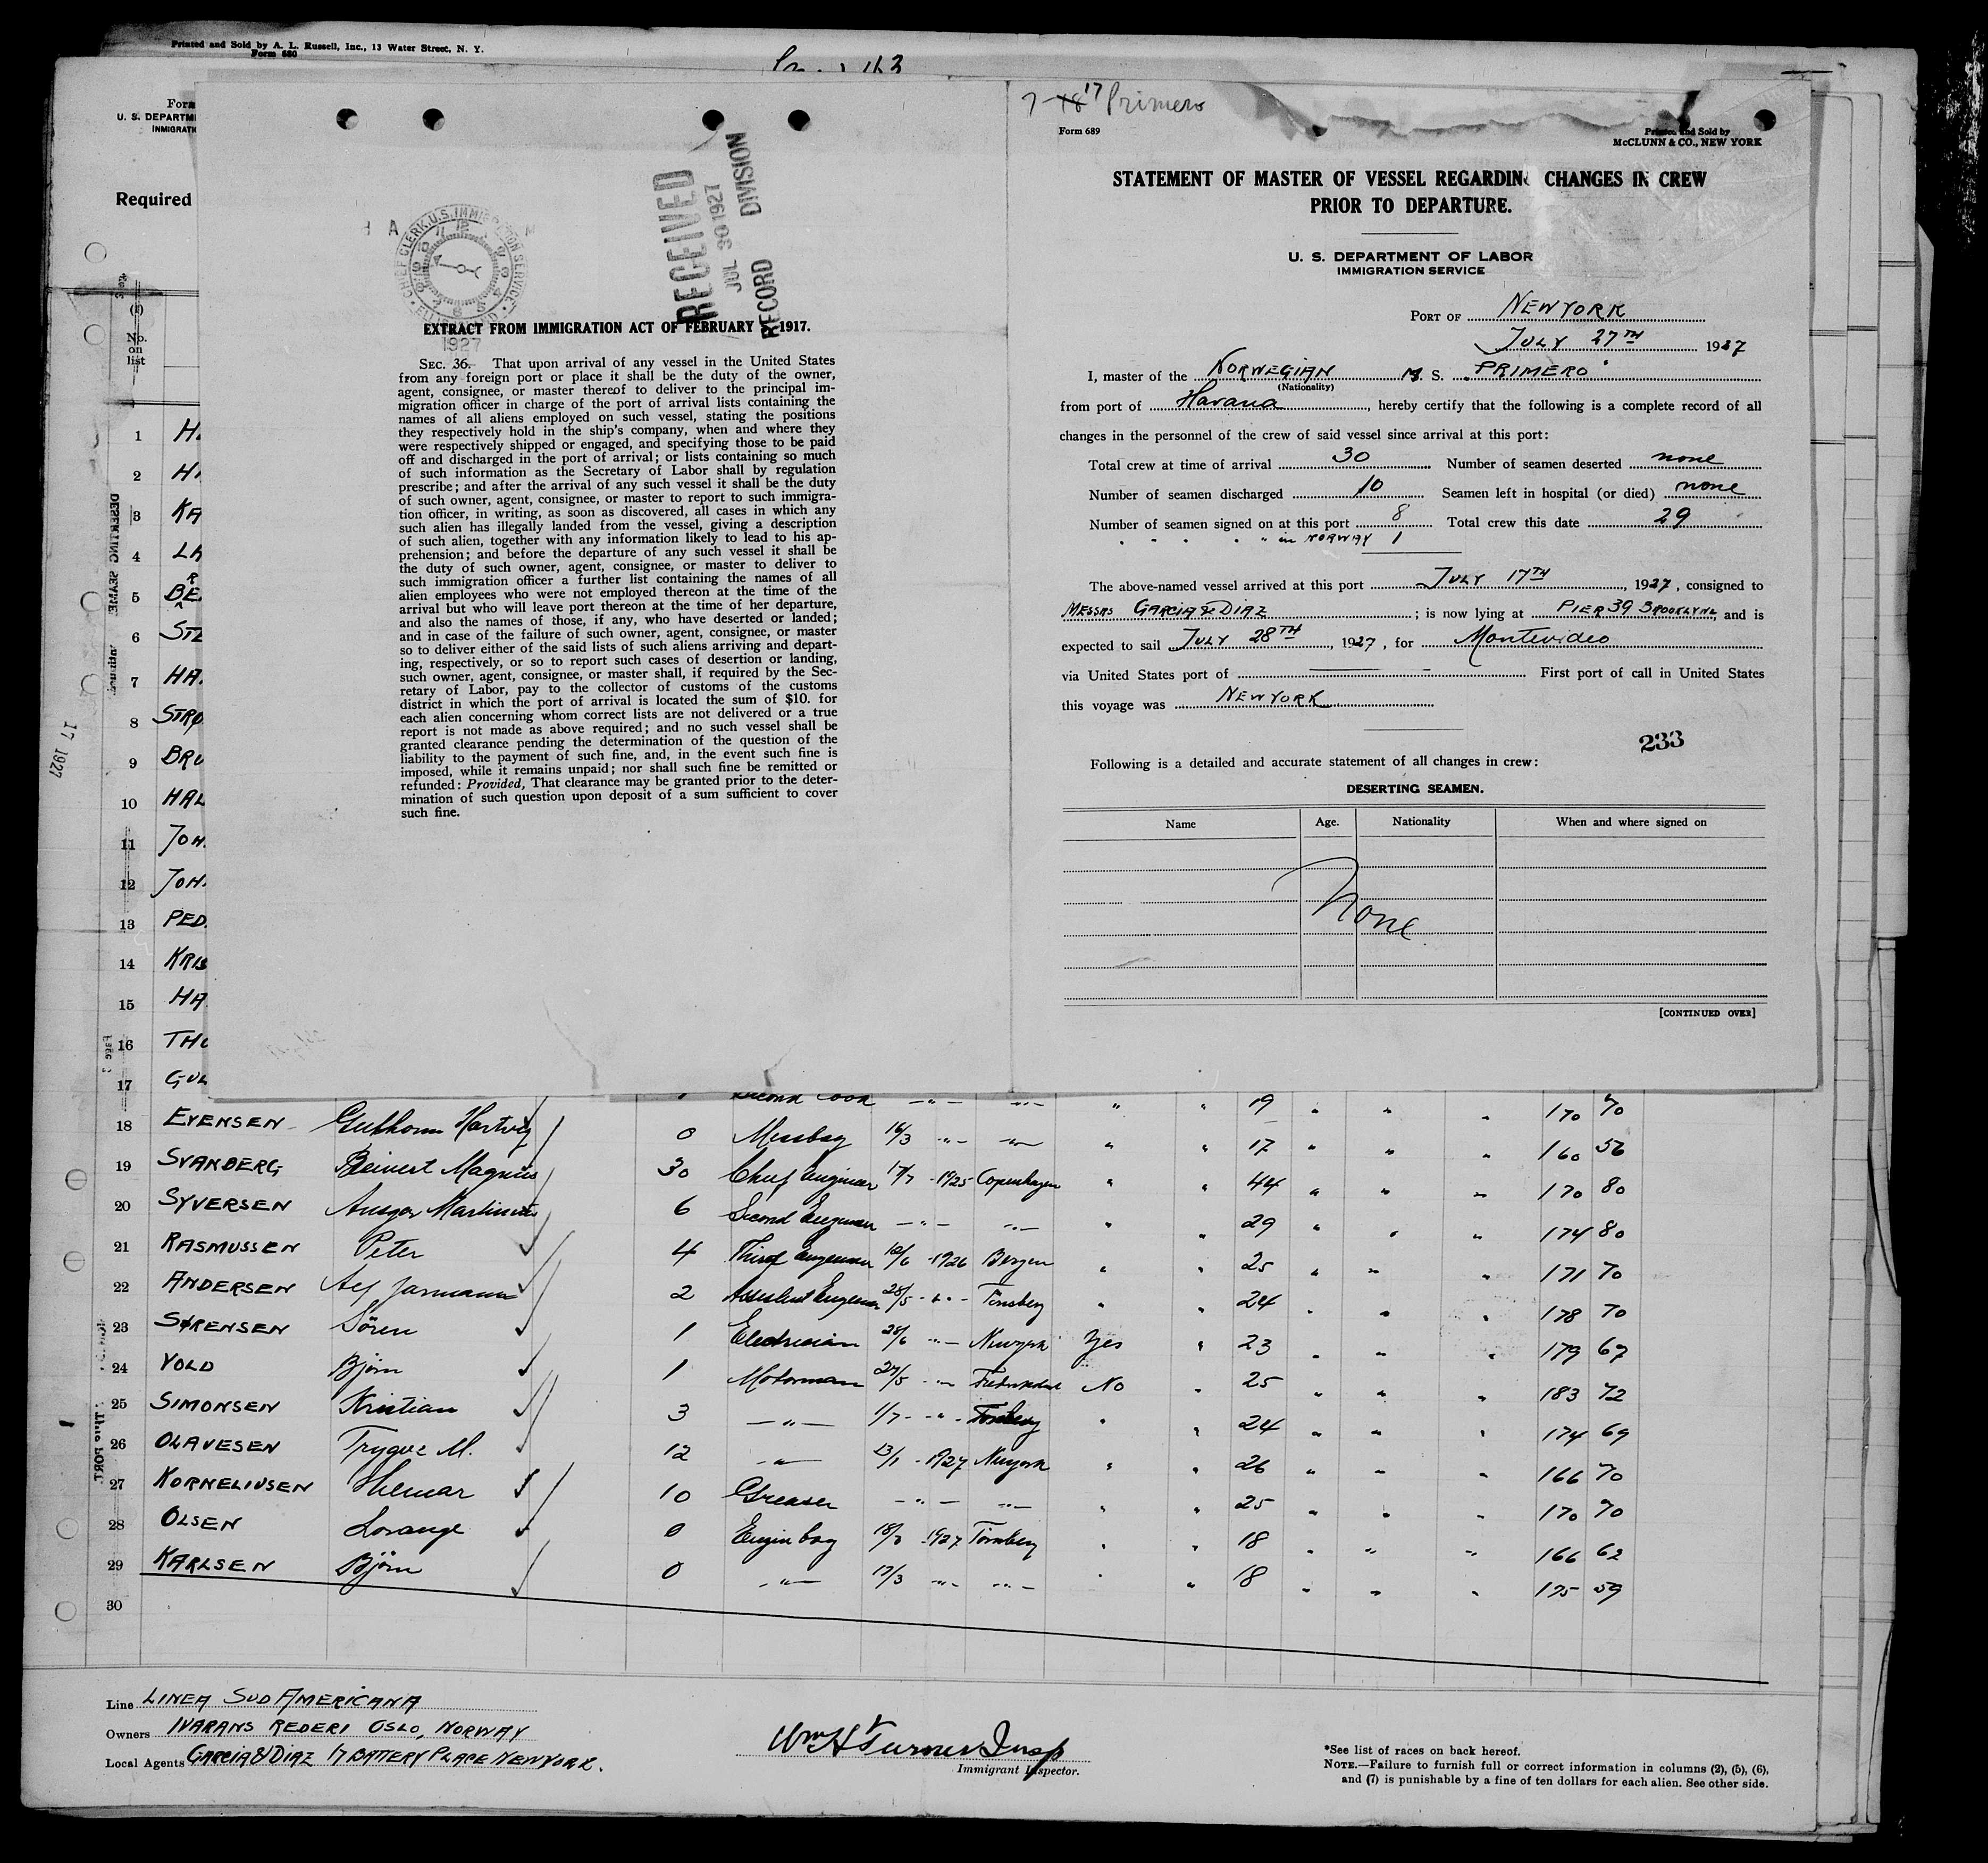 Printed and Sold by A. L. Russell, Inc., 13 Water Street, N. Y.
Form 680
Form
U. S. DEPARTM
IMMIGRATI
Required
(1)
No.
on
list
RECEIVED
JUL 30 1927
RECORD DIVISION
CHIEF CLERK, U.S. IMMIGRATION SERVICE
1927
EXTRACT FROM IMMIGRATION ACT OF FEBRUARY 5, 1917.
SEC. 36. That upon arrival of any vessel in the United States
from any foreign port or place it shall be the duty of the owner,
agent, consignee, or master thereof to deliver to the principal im-
migration officer in charge of the port of arrival lists containing the
names of all aliens employed on such vessel, stating the positions
they respectively hold in the ship's company, when and where they
were respectively shipped or engaged, and specifying those to be paid
off and discharged in the port of arrival; or lists containing so much
of such information as the Secretary of Labor shall by regulation
prescribe; and after the arrival of any such vessel it shall be the duty
of such owner, agent, consignee, or master to report to such immigra-
tion officer, in writing, as soon as discovered, all cases in which any
such alien has illegally landed from the vessel, giving a description
of such alien, together with any information likely to lead to his ap-
prehension; and before the departure of any such vessel it shall be
the duty of such owner, agent, consignee, or master to deliver to
such immigration officer a further list containing the names of all
alien employees who were not employed thereon at the time of the
arrival but who will leave port thereon at the time of her departure,
and also the names of those, if any, who have deserted or landed;
and in case of the failure of such owner, agent, consignee, or master
so to deliver either of the said lists of such aliens arriving and depart-
ing, respectively, or so to report such cases of desertion or landing,
such owner, agent, consignee, or master shall, if required by the Sec-
retary of Labor, pay to the collector of customs of the customs
district in which the port of arrival is located the sum of $10. for
each alien concerning whom correct lists are not delivered or a true
report is not made as above required; and no such vessel shall be
granted clearance pending the determination of the question of the
liability to the payment of such fine, and, in the event such fine is
imposed, while it remains unpaid; nor shall such fine be remitted or
refunded: Provided, That clearance may be granted prior to the deter-
mination of such question upon deposit of a sum sufficient to cover
such fine.
7-18 17 Primero
Form 689
Printed and Sold by
McCLUNN & CO., NEW YORK
STATEMENT OF MASTER OF VESSEL REGARDING CHANGES IN CREW
PRIOR TO DEPARTURE.
U. S. DEPARTMENT OF LABOR
IMMIGRATION SERVICE
PORT OF NEWYORK
JULY 27TH 1927
I, master of the NORWEGIAN M. S. "PRIMERO"
(Nationality)
from port of Havana, hereby certify that the following is a complete record of all
changes in the personnel of the crew of said vessel since arrival at this port:
Total crew at time of arrival 30 Number of seamen deserted none
Number of seamen discharged 10 Seamen left in hospital (or died) none
Number of seamen signed on at this port 8 Total crew this date 29
" " " " " in NORWAY 1
The above-named vessel arrived at this port JULY 17TH, 1927, consigned to
MESSRS GARCIA & DIAZ; is now lying at PIER 39 BROOKLYN, and is
expected to sail JULY 28TH, 1927, for Montevideo
via United States port of First port of call in United States
this voyage was NEWYORK
233
Following is a detailed and accurate statement of all changes in crew:
DESERTING SEAMEN.
Name Age. Nationality When and where signed on
None
[CONTINUED OVER]
17 1927
1 H
2 H
3 KA
4 LA
5 BER
6 STE
7 HA
8 STRO
9 BRU
10 HAL
11 JOH
12 JOH
13 PED
14 KRIS
15 HA
16 THO
17 GUL
Second Cook " " " " 19 " " " 170 70
18 EVENSEN Guthorm Hartvig 0 Messboy 16/3 " " " " 17 " " " 160 56
19 SVANBERG Reivert Magnus 30 Chief Engineer 17/7 - 1925 Copenhagen " " 44 " " " 170 80
20 SYVERSEN Ansgar Martinius 6 Second Engineer " " " " 29 " " " 174 80
21 RASMUSSEN Peter 4 Third Engineer /6 - 1926 Bergen " " 25 " " " 171 70
22 ANDERSEN Alf Jarmann 2 Assistent Engineer 28/5 - " - Tönsberg " " 24 " " " 178 70
23 SØRENSEN Sören 1 Electrician 28/6 " Newyork Yes " 23 " " " 179 67
24 VOLD Björn 1 Motorman 27/5 - " Fredrikstad No " 25 " " " 183 72
25 SIMONSEN Kristian 3 " 1/7 - " - Tönsberg " " 24 " " " 174 69
26 OLAVESEN Trygve M. 12 " 13/1 - 1927 Newyork " " 26 " " " 166 70
27 KORNELIUSEN Hilmar 10 Greaser " " " " 25 " " " 170 70
28 OLSEN Lorange 0 Engin boy 18/3 1927 Tönsberg " " 18 " " " 166 62
29 KARLSEN Björn 0 " 17/3 " " " " 18 " " " 175 59
30
Line LINEA SUD AMERICANA
Owners IVARANS REDERI OSLO, NORWAY
Local Agents GARCIA & DIAZ 17 BATTERY PLACE NEWYORK.
Wm H Turner Insp
Immigrant Inspector.
*See list of races on back hereof.
NOTE.—Failure to furnish full or correct information in columns (2), (5), (6),
and (7) is punishable by a fine of ten dollars for each alien. See other side.